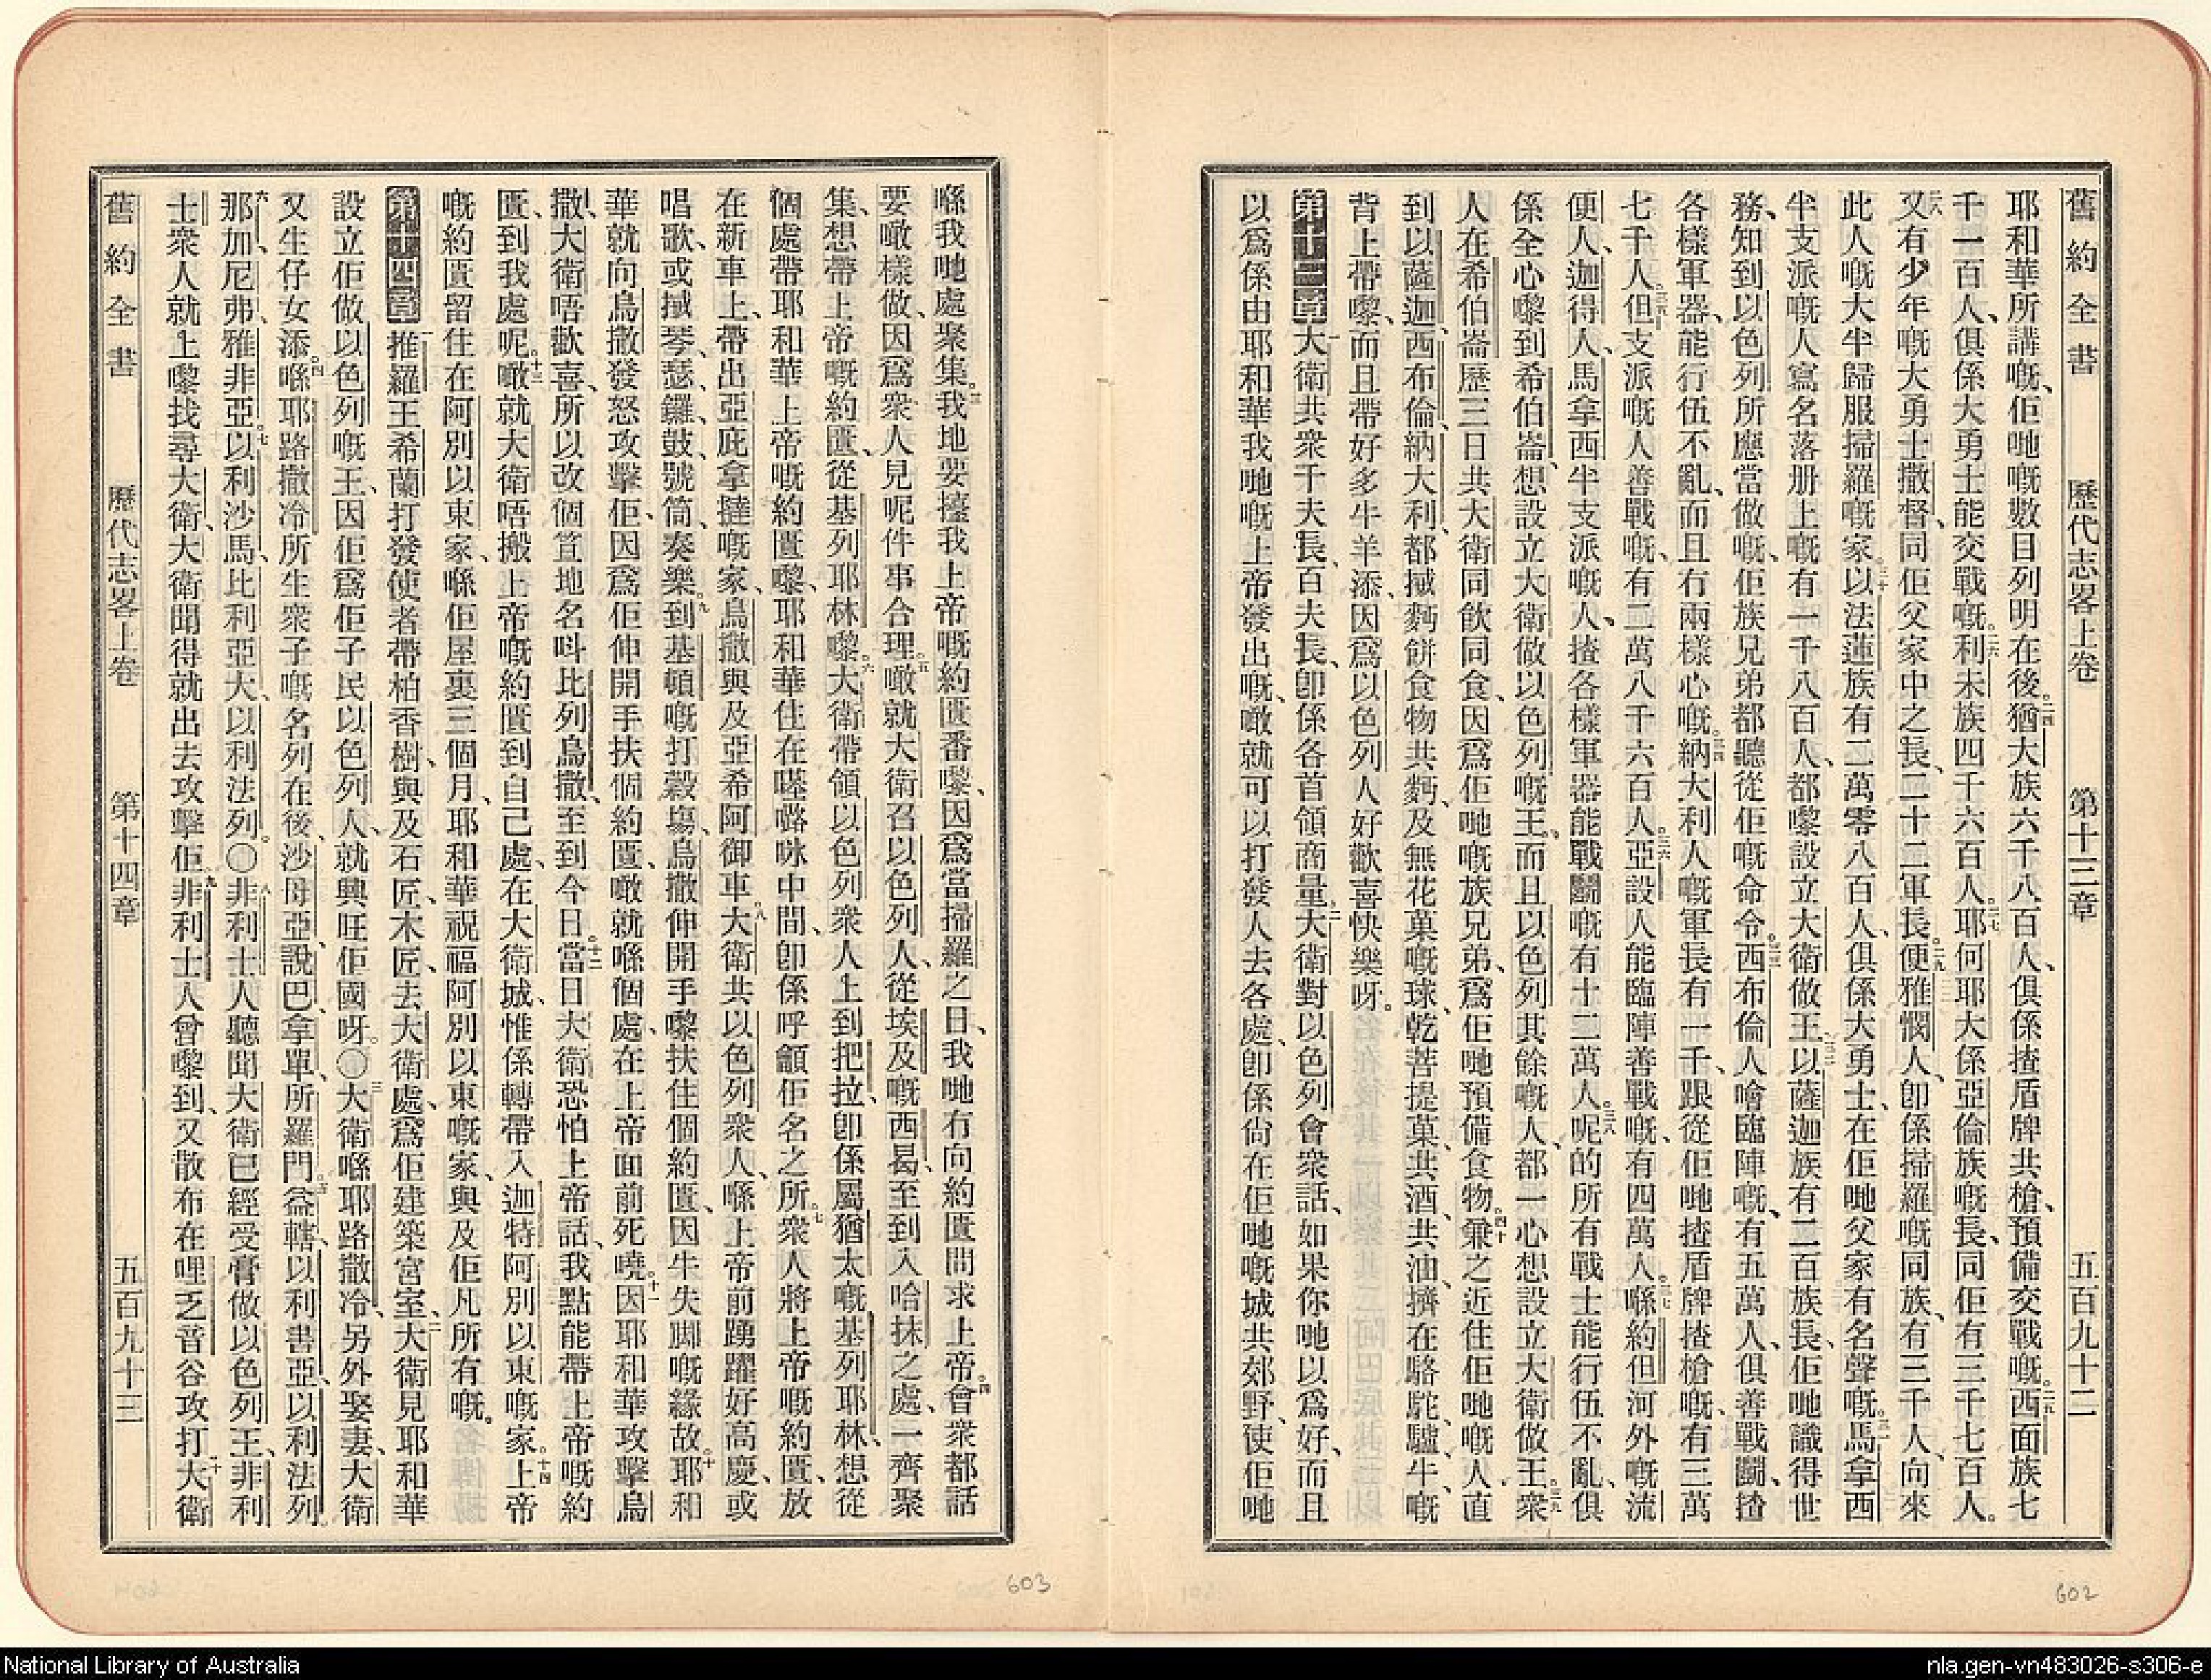 舊約全書 歷代志畧上卷 第十三章 五百九十二
耶和華所講嘅、佢哋嘅數目列明在後。二四猶大族六千八百人、俱係揸盾牌共槍、預備交戰嘅。二五西面族七
千一百人、俱係大勇士能交戰嘅。二六利未族四千六百人。二七耶何耶大係亞倫族嘅長、同佢有三千七百人。
二八又有少年嘅大勇士撒督、同佢父家中之長、二十二軍長。二九便雅憫人、卽係掃羅嘅同族、有三千人、向來
此人嘅大半歸服掃羅嘅家。三十以法蓮族有二萬零八百人、俱係大勇士、在佢哋父家有名聲嘅。三一馬拿西
半支派嘅人寫名落册上嘅有一千八百人、都嚟設立大衛做王。三二以薩迦族有二百族長、佢哋識得世
務、知到以色列所應當做嘅、佢族兄弟都聽從佢嘅命令。三三西布倫人噲臨陣嘅、有五萬人、俱善戰鬭、揸
各樣軍器、能行伍不亂、而且冇兩樣心嘅。三四納大利人嘅軍長有一千、跟從佢哋揸盾牌揸槍嘅、有三萬
七千人。三五但支派嘅人善戰嘅、有二萬八千六百人。三六亞設人能臨陣善戰嘅、有四萬人。三七喺約但河外嘅流
便人、迦得人、馬拿西半支派嘅人、揸各樣軍器能戰鬭嘅有十二萬人。三八呢的所有戰士能行伍不亂、俱
係全心嚟到希伯崙、想設立大衛做以色列嘅王。而且以色列其餘嘅人、都一心想設立大衛做王。三九衆
人在希伯崙歷三日、共大衛同飲同食、因爲佢哋嘅族兄弟、爲佢哋預備食物。四十兼之近住佢哋嘅人、直
到以薩迦、西布倫、納大利、都搣麪餅食物共麪、及無花菓嘅球、乾菩提菓、共酒共油、擠在駱駝、驢、牛、嘅
背上帶嚟、而且帶好多牛羊添、因爲以色列人好歡喜快樂呀。
第十三章 一大衛共衆千夫長、百夫長、卽係各首領商量。二大衛對以色列會衆話、如果你哋以爲好、而且
以爲係由耶和華我哋嘅上帝發出嘅、噉就可以打發人去各處、卽係尙在佢哋嘅城共郊野、使佢哋
602
喺我哋處聚集。三我地要擡我上帝嘅約匱番嚟、因爲當掃羅之日、我哋冇向約匱問求上帝。四會衆都話
要噉樣做、因爲衆人見呢件事合理。五噉就大衛召以色列人、從埃及嘅西曷、至到入哈抹之處、一齊聚
集、想帶上帝嘅約匱、從基列耶林嚟。六大衛帶領以色列衆人上到把拉、卽係屬猶太嘅基列耶林、想從
個處帶耶和華上帝嘅約匱嚟、耶和華住在𠼮嚕咏中間、卽係呼籲佢名之所。七衆人將上帝嘅約匱、放
在新車上、帶出亞庇拿撻嘅家、烏撒與及亞希阿御車。八大衛共以色列衆人、喺上帝前踴躍好高慶、或
唱歌、或搣琴、瑟、鑼、鼓、號筒、奏樂。九到基頓嘅打穀塲、烏撒伸開手嚟扶住個約匱、因牛失脚嘅緣故。十耶和
華就向烏撒發怒攻擊佢、因爲佢伸開手扶個約匱、噉就喺個處、在上帝面前死嘵。十一因耶和華攻擊烏
撒、大衛唔歡喜、所以改個笪地名呌比列烏撒、至到今日。十二當日大衛恐怕上帝話、我點能帶上帝嘅約
匱、到我處呢。十三噉就大衛唔搬上帝嘅約匱到自己處、在大衛城、惟係轉帶入迦特阿別以東嘅家。十四上帝
嘅約匱留住在阿別以東家、喺佢屋裏三個月、耶和華祝福阿別以東嘅家、與及佢凡所有嘅。
第十四章 一推羅王希蘭打發使者帶柏香樹、與及石匠、木匠、去大衛處、爲佢建築宮室、二大衛見耶和華
設立佢做以色列嘅王、因佢爲佢子民以色列人、就興旺佢國呀。〇三大衛喺耶路撒冷、另外娶妻、大衛
又生仔女添。四喺耶路撒冷所生衆子嘅名列在後、沙母亞、說巴、拿單、所羅門。五益轄、以利書亞、以利法列。
六那加、尼弗、雅非亞。七以利沙馬、比利亞大、以利法列。〇八非利士人聽聞大衛已經受膏做以色列王、非利
士衆人就上嚟找尋大衛、大衛聞得就出去攻擊佢。九非利士人曾嚟到、又散布在哩乏音谷攻打。十大衛
舊約全書 歷代志畧上卷 第十四章 五百九十三
603
National Library of Australia
nla.gen-vn483026-s306-e